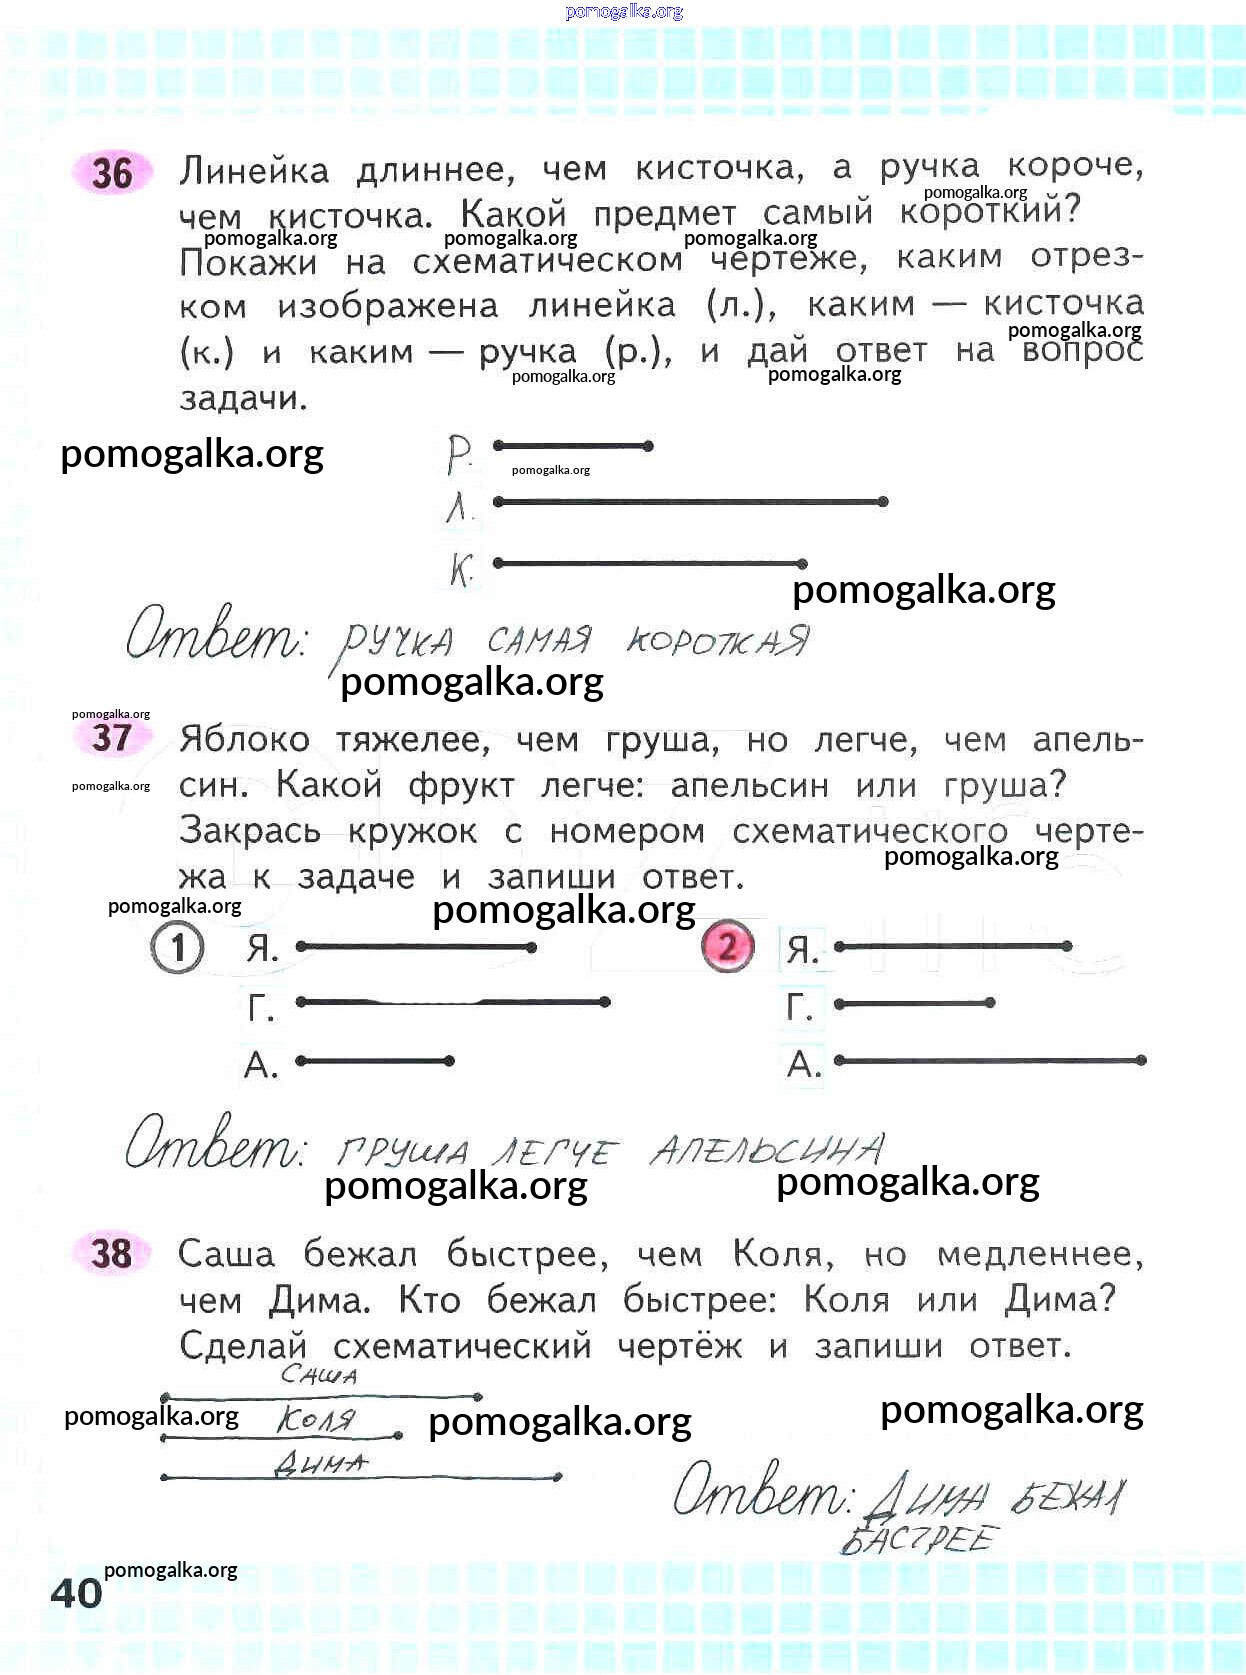 pomogalka.org
36 Линейка длиннее, чем кисточка, а ручка короче,
pomogalka.org
чем кисточка. Какой предмет самый короткий?
pomogalka.org pomogalka.org pomogalka.org
Покажи на схематическом чертеже, каким отрез-
ком изображена линейка (л.), каким — кисточка
pomogalka.org
(к.) и каким — ручка (р.), и дай ответ на вопрос
pomogalka.org pomogalka.org
задачи.
pomogalka.org Р.
pomogalka.org
Л.
К.
pomogalka.org
Ответ: РУЧКА САМАЯ КОРОТКАЯ
pomogalka.org
pomogalka.org
37 Яблоко тяжелее, чем груша, но легче, чем апель-
pomogalka.org син. Какой фрукт легче: апельсин или груша?
Закрась кружок с номером схематического черте-
pomogalka.org
жа к задаче и запиши ответ.
pomogalka.org pomogalka.org
1 Я. 2 Я.
Г. Г.
А. А.
Ответ: ГРУША ЛЕГЧЕ АПЕЛЬСИНА
pomogalka.org pomogalka.org
38 Саша бежал быстрее, чем Коля, но медленнее,
чем Дима. Кто бежал быстрее: Коля или Дима?
Сделай схематический чертёж и запиши ответ.
САША
pomogalka.org КОЛЯ pomogalka.org pomogalka.org
ДИМА
Ответ: ДИМА БЕЖАЛ
БАСТРЕЕ
pomogalka.org
40